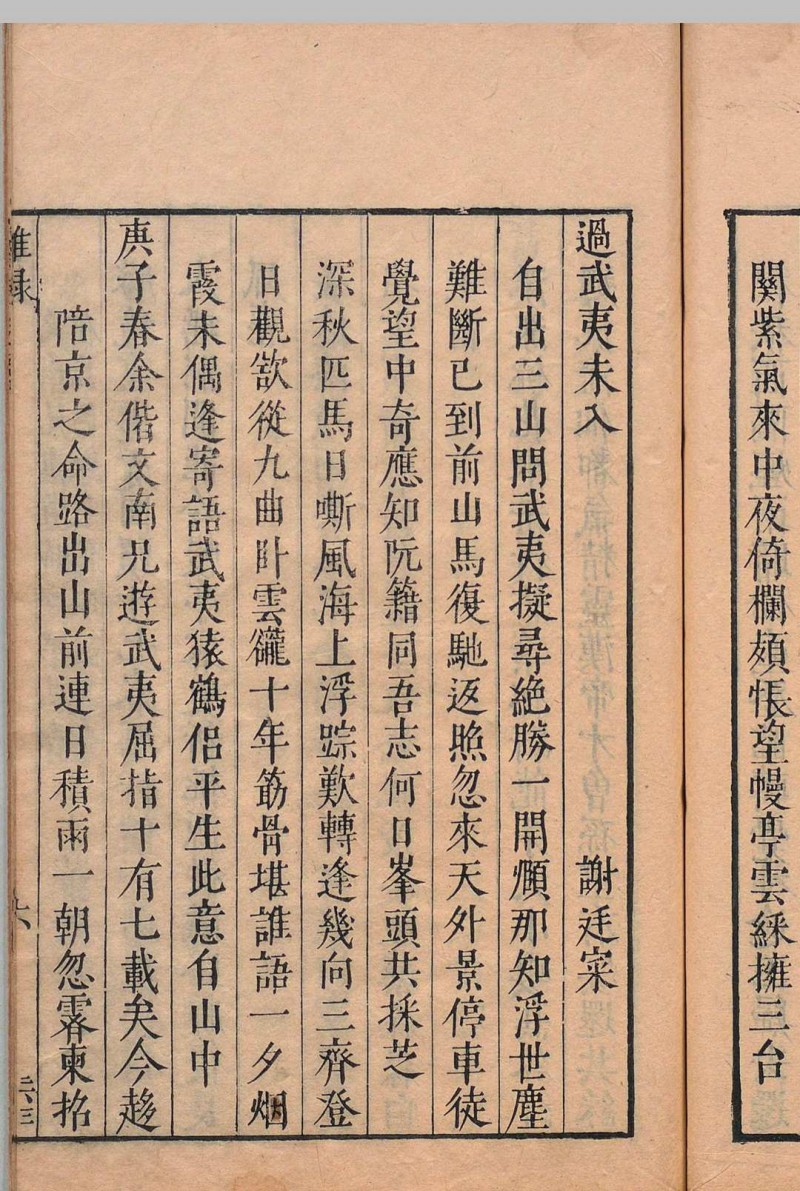 關紫氣來中夜倚欄頻悵望幔亭雲綵擁三台
過武夷未入 謝廷寀
自出三山問武夷擬尋絶勝一開顏那知浮世塵
難斷已到前山馬復馳返照忽來天外景停車徒
覺望中奇應知阮籍同吾志何日峯頭共採芝
深秋匹馬日嘶風海上浮踪歎轉逢幾向三齊登
日觀欲從九曲卧雲巃十年筋骨堪誰語一夕烟
霞未偶逢寄語武夷猿鶴侣平生此意自山中
庚子春余偕文南兄遊武夷屈指十有七載矣今趍
陪京之命路出山前連日積雨一朝忽霽東招
六